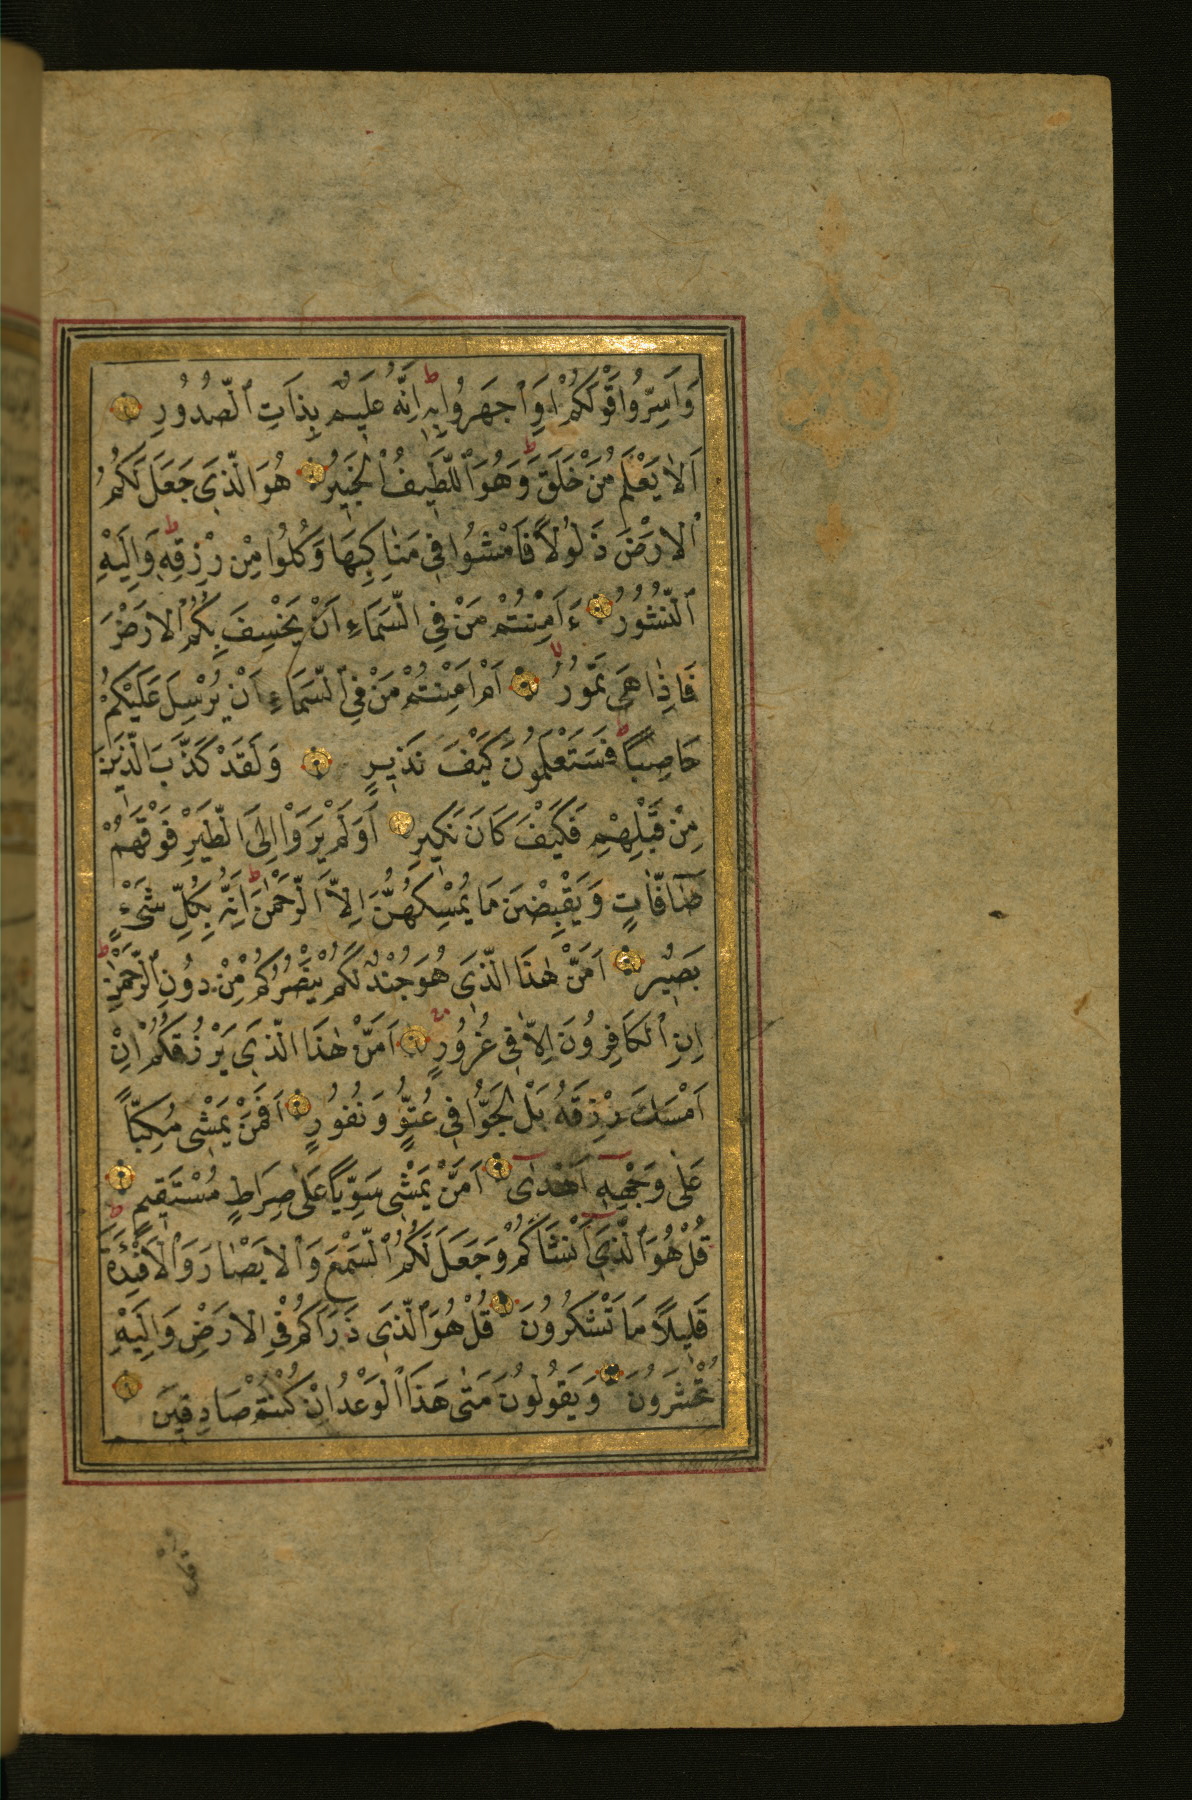 وَاَسِرُّوا قَوْلَكُمْ اَوِ ٱجْهَرُوا بِهٖ ط اِنَّهُ عَلِيمٌ بِذَاتِ ٱلصُّدُورِ
اَلَا يَعْلَمُ مَنْ خَلَقَ ط وَهُوَ ٱللَّطِيفُ ٱلْخَبِيرُ هُوَ الَّذِي جَعَلَ لَكُمُ
ٱلْاَرْضَ ذَلُولًا فَامْشُوا فِي مَنَاكِبِهَا وَكُلُوا مِنْ رِزْقِهٖ ط وَاِلَيْهِ
ٱلنُّشُورُ ءَاَمِنْتُمْ مَنْ فِي السَّمَاءِ اَنْ يَخْسِفَ بِكُمُ ٱلْاَرْضَ
فَاِذَا هِيَ تَمُورُ لا اَمْ اَمِنْتُمْ مَنْ فِي ٱلسَّمَاءِ اَنْ يُرْسِلَ عَلَيْكُمْ
حَاصِبًا ط فَسَتَعْلَمُونَ كَيْفَ نَذِيرِ وَلَقَدْ كَذَّبَ الَّذِينَ
مِنْ قَبْلِهِمْ فَكَيْفَ كَانَ نَكِيرِ اَوَلَمْ يَرَوْا اِلَى الطَّيْرِ فَوْقَهُمْ
صَافَّاتٍ وَيَقْبِضْنَ مَا يُمْسِكُهُنَّ اِلَّا الرَّحْمٰنُ ط اِنَّهُ بِكُلِّ شَيْءٍ
بَصِيرٌ اَمَّنْ هٰذَا الَّذِي هُوَ جُنْدٌ لَكُمْ يَنْصُرُكُمْ مِنْ دُونِ ٱلرَّحْمٰنِ ط
اِنِ ٱلْكَافِرُونَ اِلَّا فِي غُرُورٍ اَمَّنْ هٰذَا الَّذِي يَرْزُقُكُمْ اِنْ
اَمْسَكَ رِزْقَهُ بَلْ لَجُّوا فِي عُتُوٍّ وَنُفُورٍ اَفَمَنْ يَمْشِي مُكِبًّا
عَلٰى وَجْهِهٖ اَهْدٰى اَمَّنْ يَمْشِي سَوِيًّا عَلٰى صِرَاطٍ مُسْتَقِيمٍ
قُلْ هُوَ الَّذِي اَنْشَاَكُمْ وَجَعَلَ لَكُمُ ٱلسَّمْعَ وَٱلْاَبْصَارَ وَٱلْاَفْئِدَةَ ط
قَلِيلًا مَا تَشْكُرُونَ قُلْ هُوَ ٱلَّذِي ذَرَاَكُمْ فِي الْاَرْضِ وَاِلَيْهِ
تُحْشَرُونَ وَيَقُولُونَ مَتٰى هَذَا ٱلْوَعْدُ اِنْ كُنْتُمْ صَادِقِينَ
قل